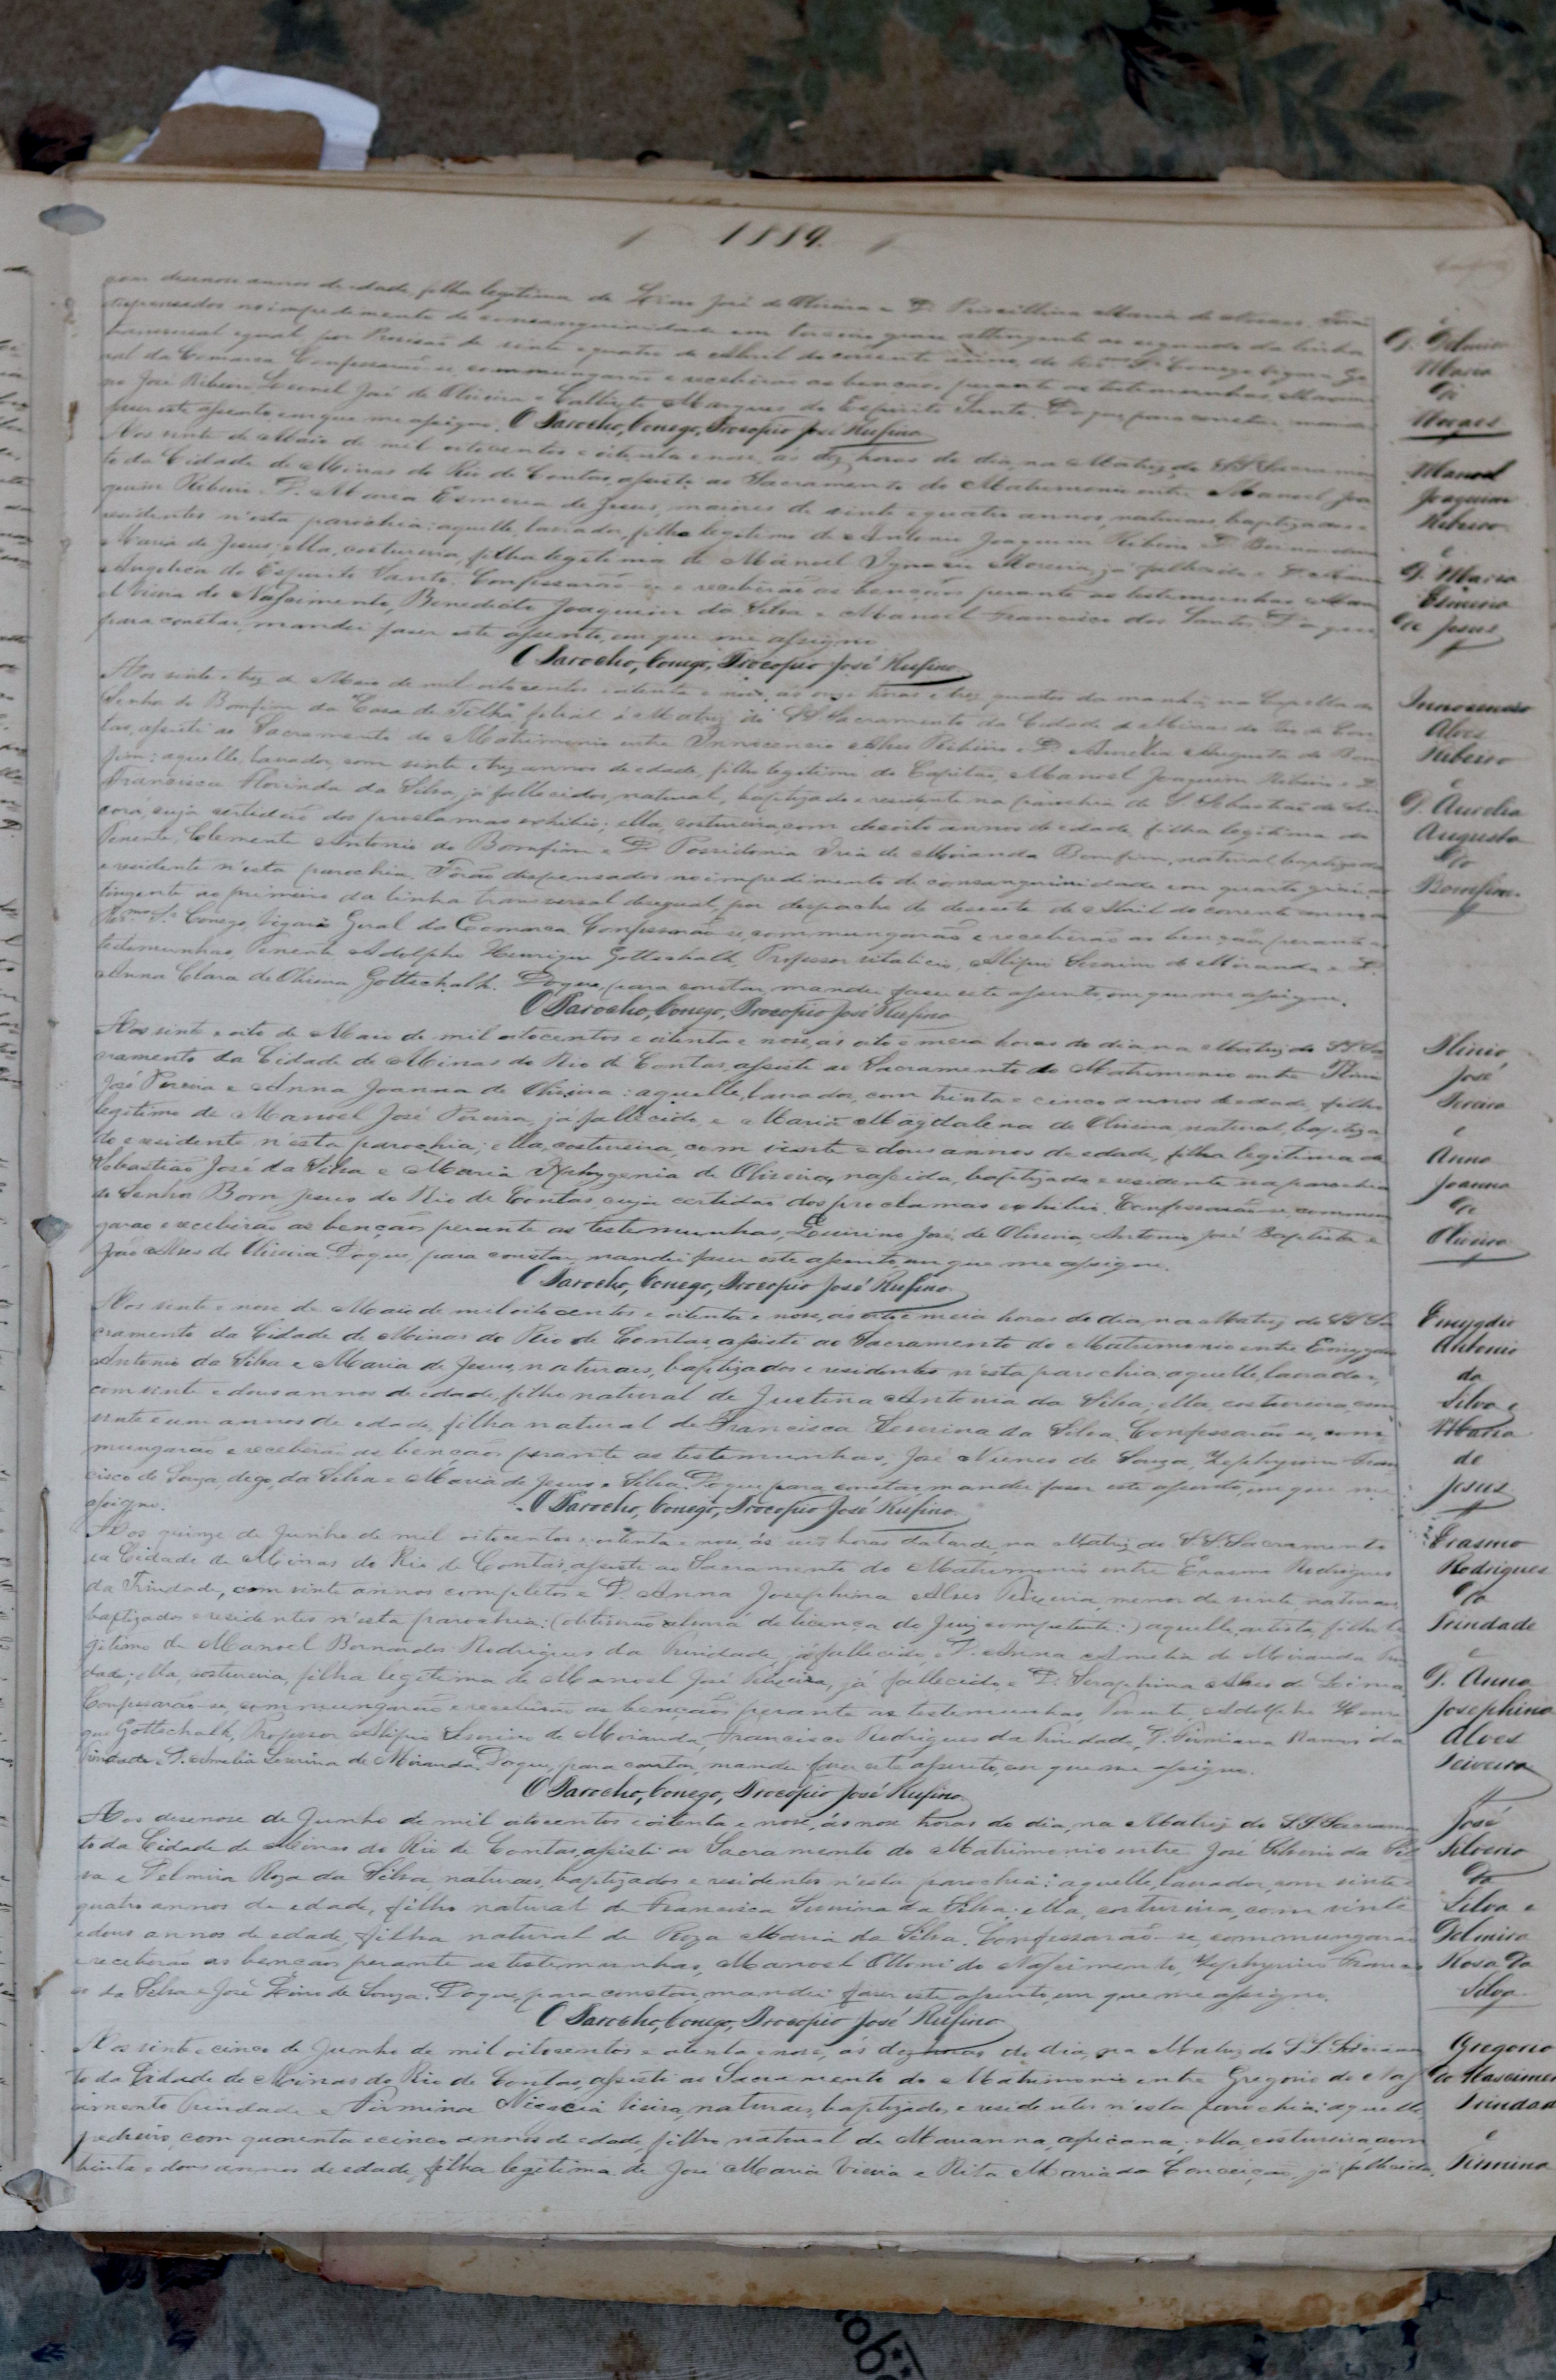 1889.
com desenove annos de edade, filha legitima de Lino José de Oliveira e D. Priscilliana Maria de Moraes. Forão
dispensados no impedimento de consanguinidade em terceiro grau attingente ao segundo da linha
transversal egual por Provisão de vinte e quatro de Abril do corrente anno, do Conego Vigario Ge
ral da Comarca. Confessarão-se, commungarão e receberão as bençãos perante as testemunhas,
no José Ribeiro, Leonel José de Oliveira e Callixto Marques do Espirito Santo. Do que, para constar, mandei
faser este assento, em que me assigno. O Parocho, Conego, Procopio José Rufino
D.
Maria
de
Moraes
Aos vinte de Maio de mil oitocentos e oitenta e nove, ás dez horas do dia, na Matriz do SS. Sacramen
to da Cidade de Minas do Rio de Contas, assisti ao Sacramento do Matrimonio entre Manoel Joa
quim Ribeiro e D. Maria Esmeria de Jesus, maiores de vinte e quatro annos, naturaes, baptizados e
residentes n'esta parochia: aquelle, lavrador, filho legitimo de Antonio Joaquim Ribeiro e D.
Maria de Jesus; ella, costureira, filha legitima de Manoel Ignacio Moreira, já fallecido, e D.
Angelica do Espirito Santo. Confessarão-se e receberão as bençãos perante as testemunhas
Vieira do Nascimento, Benedicto Joaquim da Silva e Manoel Francisco dos Santos. Do que,
para constar, mandei faser este assento, em que me assigno
O Parocho, Conego, Procopio José Rufino
Manoel
Joaquim
Ribeiro
e
D. Maria
Esmeria
de Jesus
Aos vinte e tres de Maio de mil oitocentos e oitenta e nove, ás onze horas e tres quartos da manhã, na Capella do
Senhor do Bomfim da Casa de Telha, filial á Matriz do SS. Sacramento da Cidade de Minas do Rio de Con
tas, assisti ao Sacramento do Matrimonio entre Innocencio Alves Ribeiro e D. Aurelia Augusta do Bom
fim: aquelle, lavrador, com vinte e tres annos de edade, filho legitimo do Capitão Manoel Joaquim Ribeiro e D.
Francisca Florinda da Silva, já fallecidos, natural, baptizado e residente na parochia de S. Sebastião do Sin
corá, cuja certidão dos proclamas exhibio; ella, costureira, com desoito annos de edade, filha legitima do
Tenente Clemente Antonio do Bomfim e D. Possidonia Iria de Miranda Bomfim, natural, baptizada
e residente n'esta parochia. Forão dispensados no impedimento de consanguinidade em quarto grau at
tingente ao primeiro da linha transversal desegual, por despacho de desesete de Abril do corrente anno, do
Conego Vigario Geral da Comarca. Confessarão-se, commungarão e receberão as bençãos perante as
testemunhas, Tenente Adolpho Henrique Gottschalk, Professor vitalicio, Alipio Severino de Miranda e D.
Anna Clara de Oliveira Gottschalk. Do que, para constar, mandei faser este assento, em que me assigno.
O Parocho, Conego, Procopio José Rufino
Innocencio
Alves
Ribeiro
e
D. Aurelia
Augusta
do
Bomfim
Aos vinte e oito de Maio de mil oitocentos e oitenta e nove, ás oito e meia horas do dia, na Matriz do SS. Sa
cramento da Cidade de Minas do Rio de Contas, assisti ao Sacramento do Matrimonio entre Plinio
José Pereira e Anna Joanna de Oliveira: aquelle, lavrador, com trinta e cinco annos de edade, filho
legitimo de Manoel José Pereira, já fallecido, e Maria Magdalena de Oliveira, natural, baptiza
do e residente n'esta parochia; ella, costureira, com vinte e dous annos de edade, filha legitima de
Sebastião José da Silva e Maria Iphygenia de Oliveira, nascida, baptizada e residente na parochia
do Senhor Bom Jesus do Rio de Contas, cuja certidão dos proclamas exhibio. Confessarão-se, commun
garão e receberão as bençãos perante as testemunhas, José de Oliveira, Antonio José Baptista e
João Alves de Oliveira. Do que, para constar, mandei faser este assento, em que me assigno.
O Parocho, Conego, Procopio José Rufino
Plinio
José
Pereira
e
Anna
Joanna
de
Oliveira
Aos vinte e nove de Maio de mil oitocentos e oitenta e nove, ás oito e meia horas do dia, na Matriz do SS. Sa
cramento da Cidade de Minas do Rio de Contas, assisti ao Sacramento do Matrimonio entre Emygdio
Antonio da Silva e Maria de Jesus, naturaes, baptizados e residentes n'esta parochia: aquelle, lavrador,
com vinte e dous annos de edade, filho natural de Justina Antonia da Silva; ella, costureira, com
vinte e um annos de edade, filha natural de Francisca Severina da Silva. Confessarão-se, com
mungarão e receberão as bençãos perante as testemunhas, José Nunes de Souza, Zephyrino Fran
cisco de Souza, digo, da Silva e Maria de Jesus e Silva. Do que, para constar, mandei faser este assento, em que me
assigno.
O Parocho, Conego, Procopio José Rufino
Emygdio
Antonio
da
Silva e
Maria
de
Jesus
Aos quinze de Junho de mil oitocentos e oitenta e nove, ás seis horas da tarde, na Matriz do S.S. Sacramento
da Cidade de Minas do Rio de Contas, assisti ao Sacramento do Matrimonio entre Erasmo Rodrigues
da Trindade, com vinte annos completos e D. Anna Josephina Alves Teixeira, menor de vinte, naturaes,
baptizados e residentes n'esta parochia: (obtiverão alvará de licença do Juiz competente:) aquelle, artista, filho le
gitimo de Manoel Bernardes Rodrigues da Trindade, já fallecido, e D. Anna Amelia de Miranda Trin
dade; ella, costureira, filha legitima de Manoel José Teixeira, já fallecido, e D. Seraphina Alves de Lima.
Confessarão-se, commungarão e receberão as bençãos perante as testemunhas, Tenente Adolpho Henri
que Gottschalk, Professor Alipio Severino de Miranda, Francisco Rodrigues da Trindade, D. Firmiana Ramos da
Trindade e D. Amelia Severina de Miranda. Do que, para constar, mandei faser este assento, em que me assigno.
O Parocho, Conego, Procopio José Rufino
Erasmo
Rodrigues
da
Trindade
e
D. Anna
Josephina
Alves
Teixeira
Aos desenove de Junho de mil oitocentos e oitenta e nove, ás nove horas do dia, na Matriz do S.S. Sacramen
to da Cidade de Minas do Rio de Contas, assisti ao Sacramento do Matrimonio entre José Silverio da Sil
va e Delmira Roza da Silva, naturaes, baptizados e residentes n'esta parochia: aquelle, lavrador, com vinte e
quatro annos de edade, filho natural de Francisca Severina da Silva; ella, costureira, com vinte
e dous annos de edade, filha natural de Roza Maria da Silva. Confessarão-se, commungarão
e receberão as bençãos perante as testemunhas, Manoel Ottoni do Nascimento, Zephyrino Francis
co da Silva e José Lino de Souza. Do que, para constar, mandei faser este assento, em que me assigno.
O Parocho, Conego, Procopio José Rufino
José
Silverio
da
Silva e
Delmira
Rosa da
Silva
Aos vinte e cinco de Junho de mil oitocentos e oitenta e nove, ás dez horas do dia, na Matriz do S.S. Sacramen
to da Cidade de Minas do Rio de Contas, assisti ao Sacramento do Matrimonio entre Gregorio do Nas
cimento Trindade e Firmina Vieira, naturaes, baptizados e residentes n'esta parochia: aquelle,
pedreiro, com quarenta e cinco annos de edade, filho natural de Marianna, africana; ella, costureira, com
trinta e dous annos de edade, filha legitima de José Maria Vieira e Rita Maria da Conceição, já fallecida.
Gregorio
do Nascimen
Trindad
e
Firmina